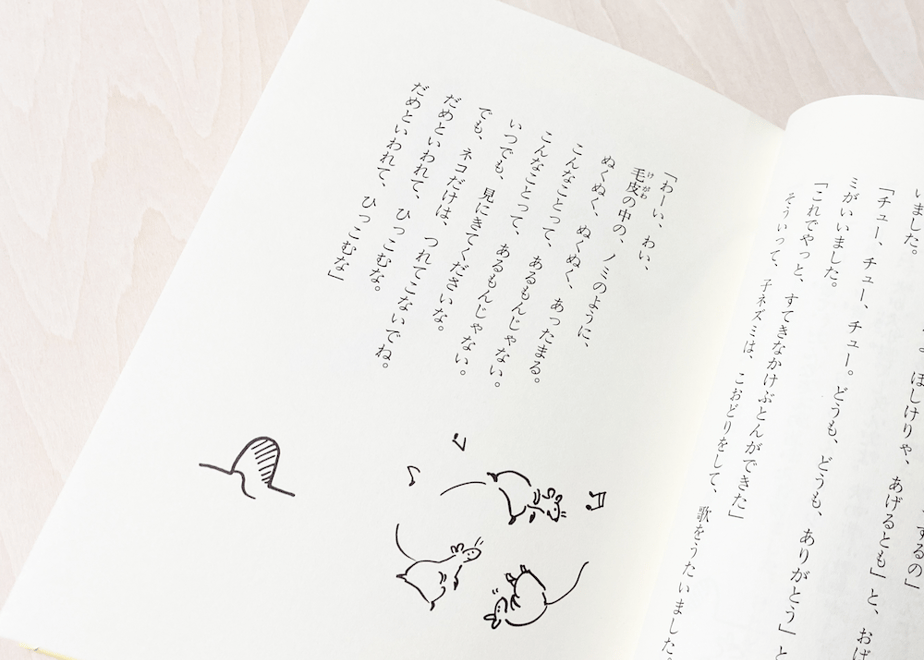 するの」
ほしけりゃ、あげるとも」と、おげ
いました。
「チュー、チュー、チュー。どうも、どうも、ありがとう」と
ミがいいました。
「これでやっと、すてきなかけぶとんができた」
そういって、子ネズミは、こおどりをして、歌をうたいました。
「わーい、わい、
毛皮の中の、ノミのように、
ぬくぬく、ぬくぬく、あったまる。
こんなことって、あるもんじゃない。
こんなことって、あるもんじゃない。
いつでも、見にきてくださいな。
でも、ネコだけは、つれてこないでね。
だめといわれて、ひっこむな。
だめといわれて、ひっこむな」